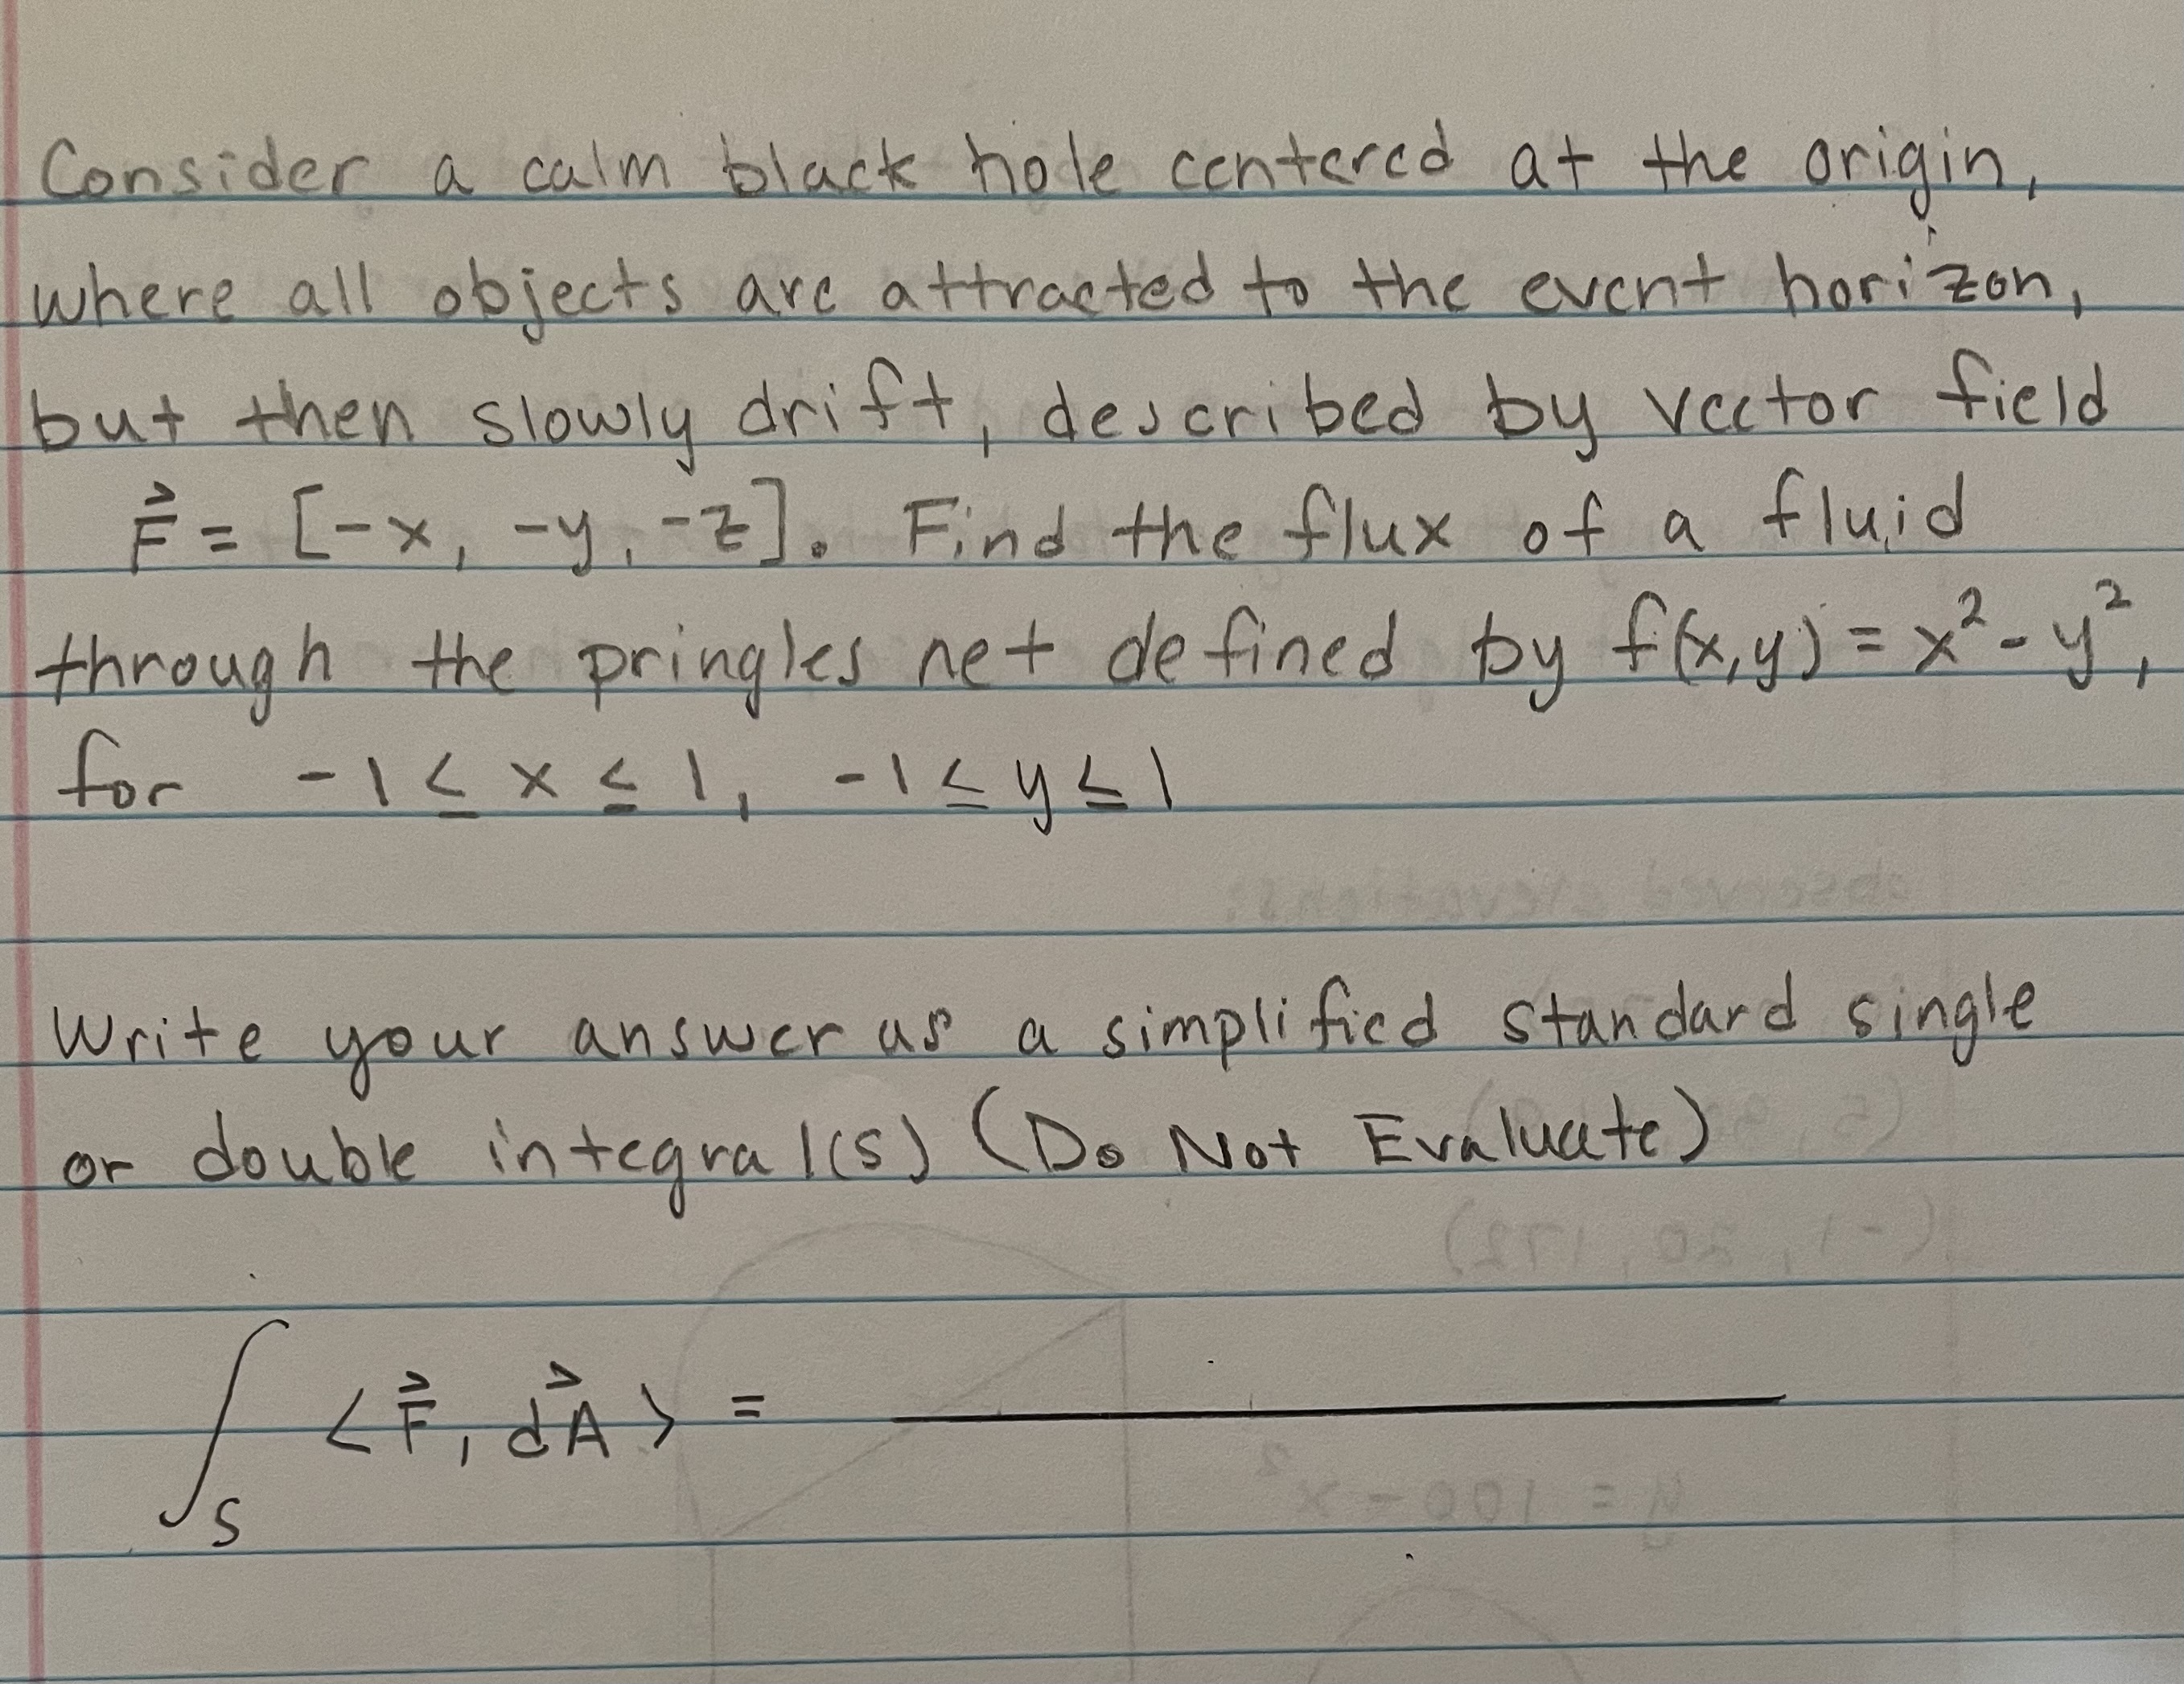 Consider a calm black hole centered at the origin,
where all objects are attracted to the event horizon,
but then slowly drift, described by vector field
F⃗ = [-x, -y, -z]. Find the flux of a fluid
through the pringles net defined by f(x,y) = x² - y²,
for -1 ≤ x ≤ 1, -1 ≤ y ≤ 1
Write your answer as a simplified standard single
or double integral(s) (Do Not Evaluate)
∫_S ⟨F⃗, dA⃗⟩ = ________